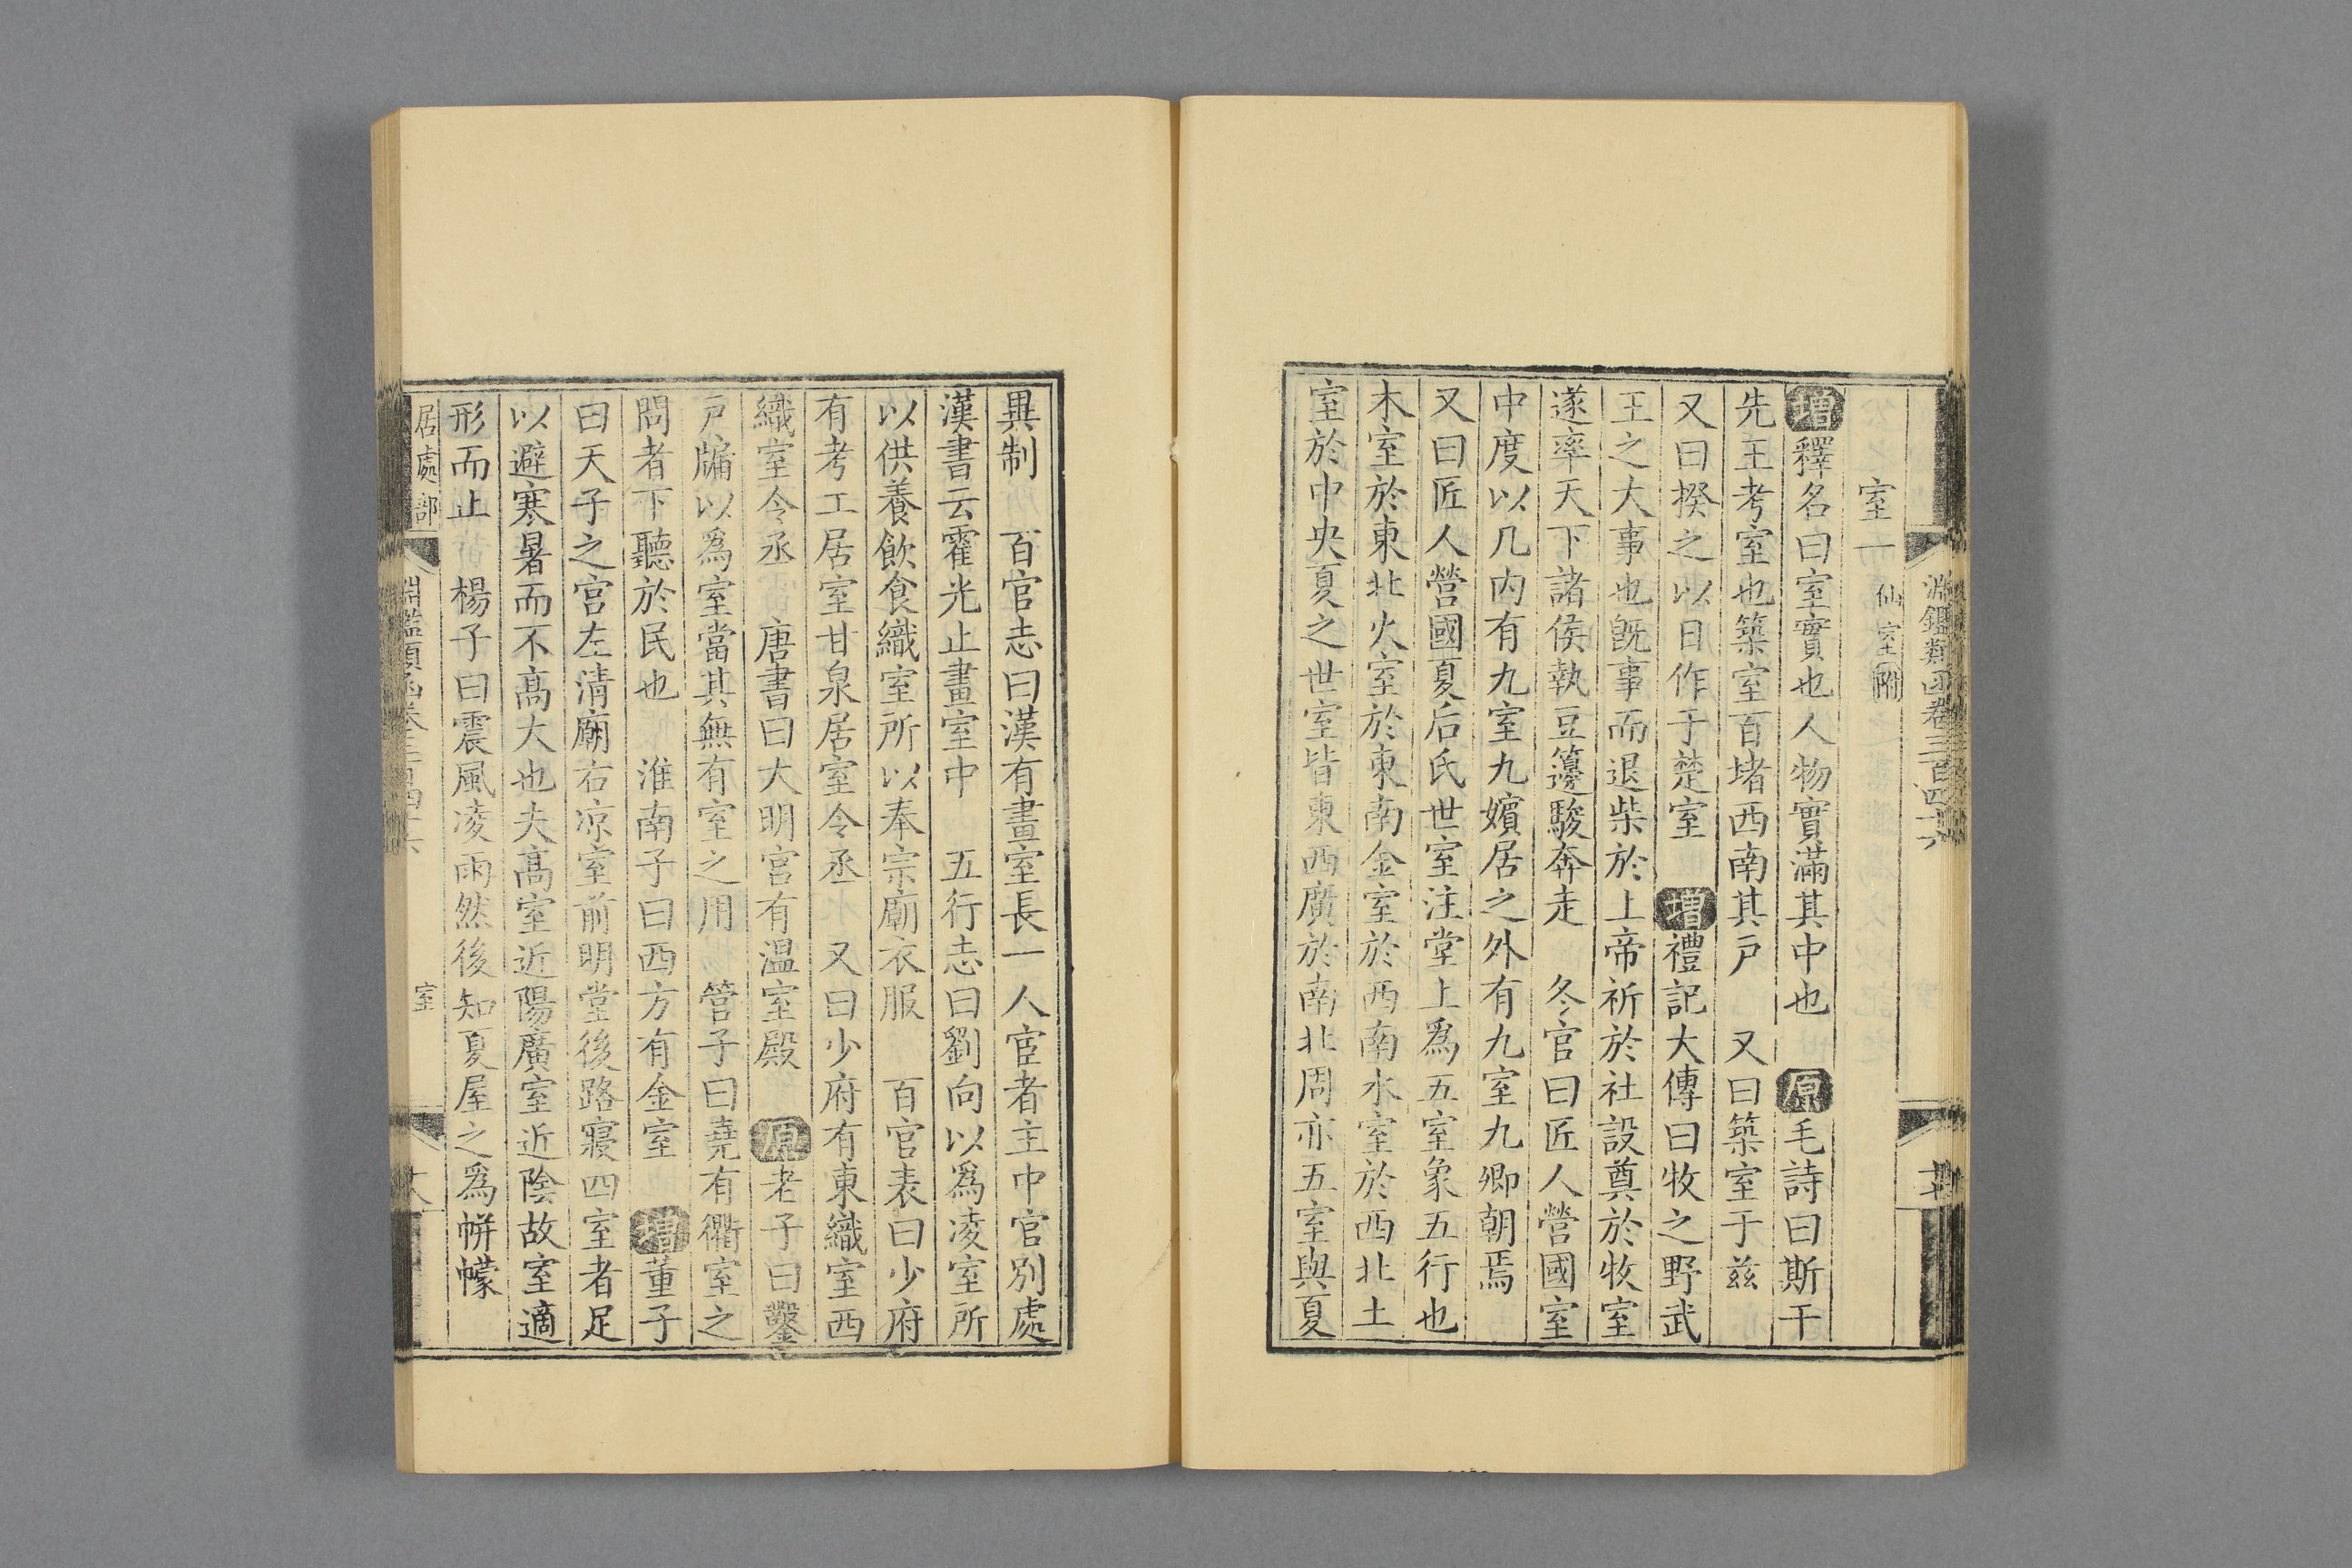 淵鑑類函卷三百四十六
室一 仙室附
增釋名曰室實也人物實滿其中也 原毛詩曰斯干
先王考室也築室百堵西南其戸 又曰築室于茲
又曰揆之以日作于楚室 增禮記大傳曰牧之野武
王之大事也既事而退柴於上帝祈於社設奠於牧室
遂率天下諸侯執豆籩駿奔走 冬官曰匠人營國室
中度以几内有九室九嬪居之外有九室九卿朝焉
又曰匠人營國夏后氏世室注堂上爲五室象五行也
木室於東北火室於東南金室於西南水室於西北土
室於中央夏之世室皆東西廣於南北周亦五室與夏
異制 百官志曰漢有畫室長一人宦者主中官別處
漢書云霍光止畫室中 五行志曰劉向以爲凌室所
以供養飲食織室所以奉宗廟衣服 百官表曰少府
有考工居室甘泉居室令丞 又曰少府有東織室西
織室令丞 唐書曰大明宮有温室殿 原老子曰鑿
戸牖以爲室當其無有室之用 管子曰堯有衢室之
問者下聽於民也 淮南子曰西方有金室 增董子
曰天子之宮左清廟右凉室前明堂後路寢四室者足
以避寒暑而不髙大也夫髙室近陽廣室近陰故室適
形而止 楊子曰震風凌雨然後知夏屋之爲帡幪
居處部 淵鑑類函卷三百四十六 室